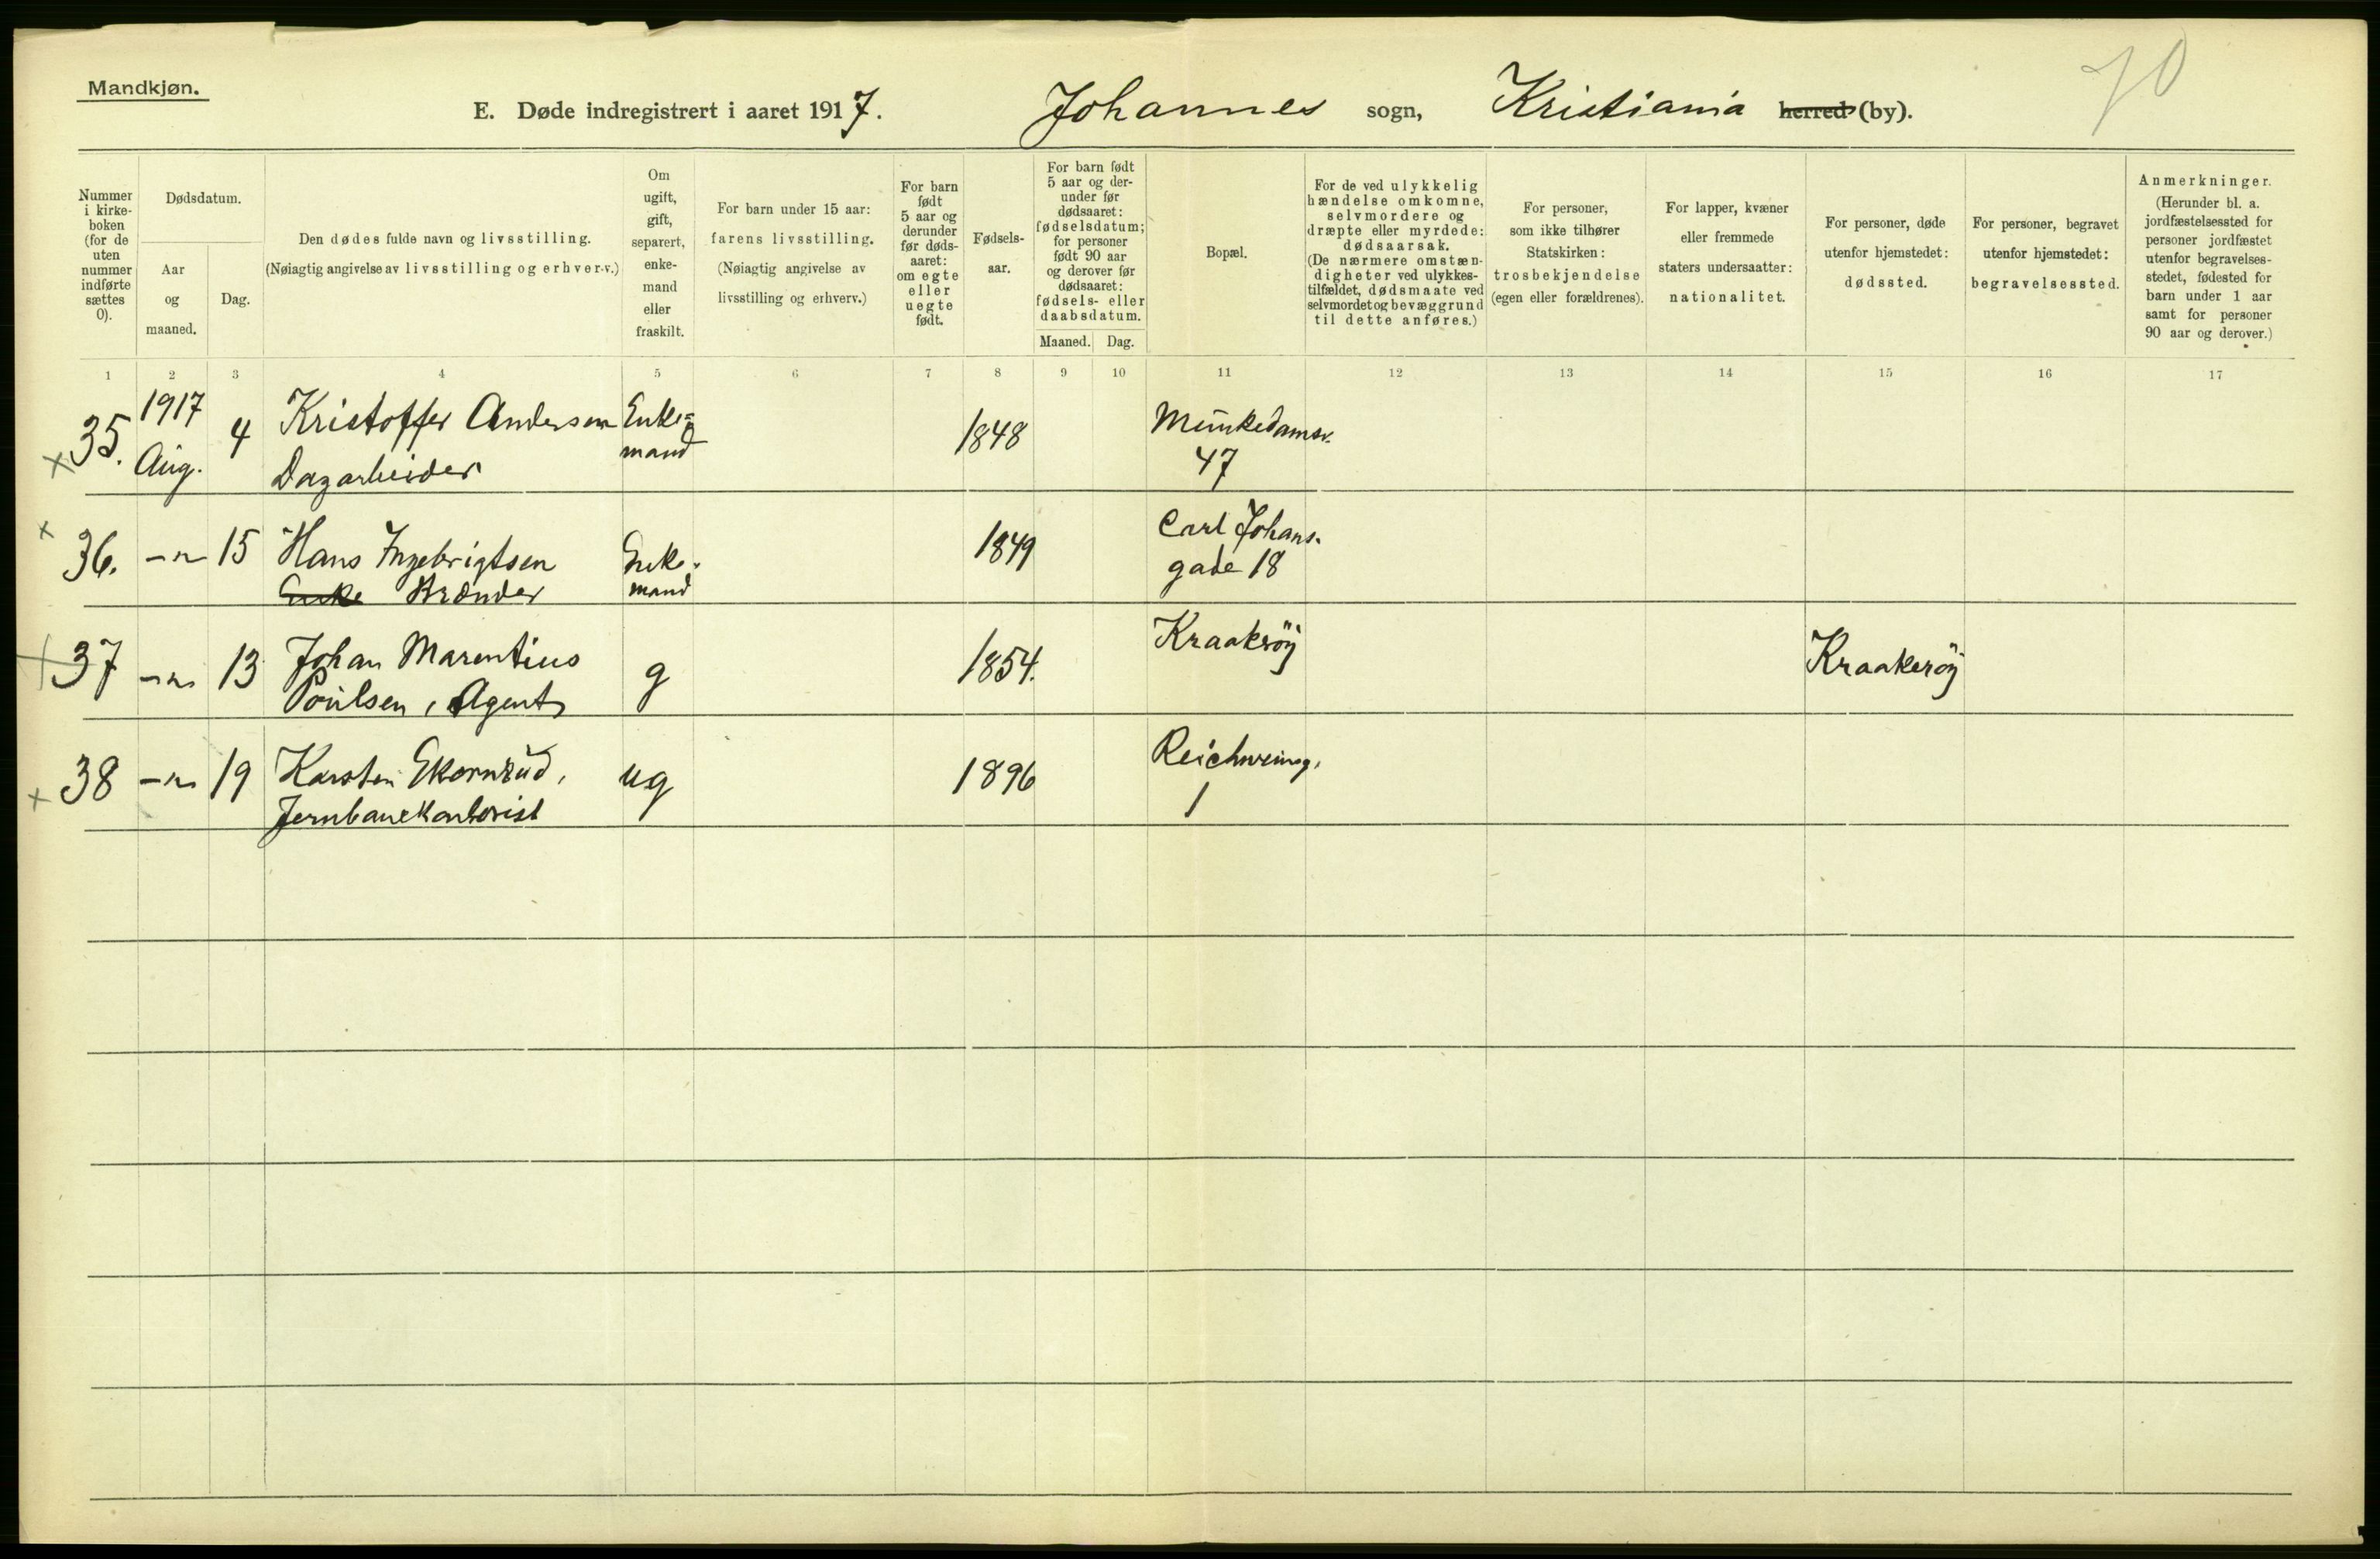 Mandkjøn.
70
E. Døde indregistrert i aaret 1917. Johannes sogn, Kristiania herred (by).
Nummer i kirke- boken (for de uten nummer indførte sættes 0).
Dødsdatum.
Aar og maaned.
Dag.
Den dødes fulde navn og livsstilling.
(Nøiagtig angivelse av livsstilling og erhverv.)
Om ugift, gift, separert, enke- mand eller fraskilt.
For barn under 15 aar: farens livsstilling. (Nøiagtig angivelse av livsstilling og erhverv.)
For barn født 5 aar og derunder før døds- aaret: om egte eller uegte født.
Fødsels- aar.
For barn født 5 aar og der- under før dødsaaret: fødselsdatum; for personer født 90 aar og derover før dødsaaret: fødsels- eller daabsdatum.
Maaned. Dag.
Bopæl.
For de ved ulykkelig hændelse omkomne, selvmordere og dræpte eller myrdede: dødsaarsak. (De nærmere omstæn- digheter ved ulykkes- tilfældet, dødsmaate ved selvmordet og bevæggrund til dette anføres.)
For personer, som ikke tilhører Statskirken: trosbekjendelse (egen eller forældrenes).
For lapper, kvæner eller fremmede staters undersaatter: nationalitet.
For personer, døde utenfor hjemstedet: dødssted.
For personer, begravet utenfor hjemstedet: begravelsessted.
Anmerkninger. (Herunder bl. a. jordfæstelsessted for personer jordfæstet utenfor begravelses- stedet, fødested for barn under 1 aar samt for personer 90 aar og derover.)
1 2 3 4 5 6 7 8 9 10 11 12 13 14 15 16 17
1917 Kristoffer Andersen Enke= Munkedamsv.
× 35. Aug. 4 Dagarbeider mand 1848 47
× 36. —"— 15 Hans Ingebrigtsen Enke- 1849 Carl Johans.
Enke Brænder mand gade 18
+ 37 —"— 13 Johan Marentius g 1854. Kraakerøy Kraakerøy
Poulsen, Agent
× 38 —"— 19 Karsten Ekornrud, ug 1896 Reichweing.
Jernbanekontorist 1